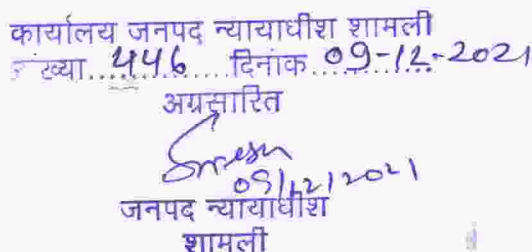 कार्यालय जनपद न्यायाधीश शामली
ख्या.....446.....दिनांक.....09-12-2021
अग्रसारित
09/12/2021
जनपद न्यायाधीश
शामली